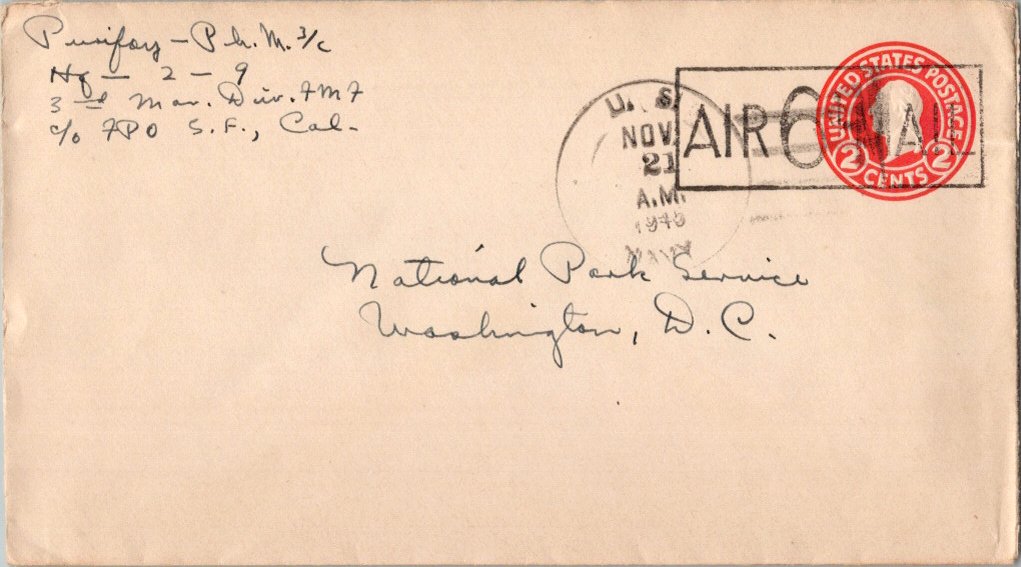 Purifoy - Ph. M. 3/c
Hq - 2 - 9
3rd Mar. Div. FMF
c/o FPO S. F., Cal-
U. S.
NOV.
21
A.M.
AIR 6¢ MAIL
UNITED STATES POSTAGE
2 CENTS 2
National Park Service
Washington, D. C.